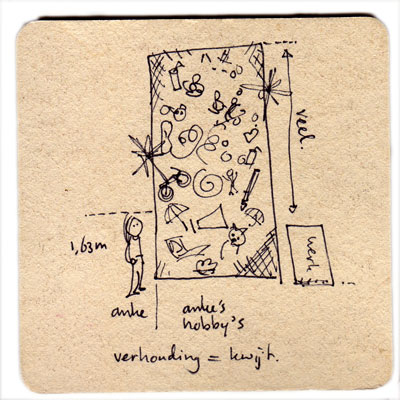 veel.
1,63m
werk
anke
anke's
hobby's
verhouding = kwijt.